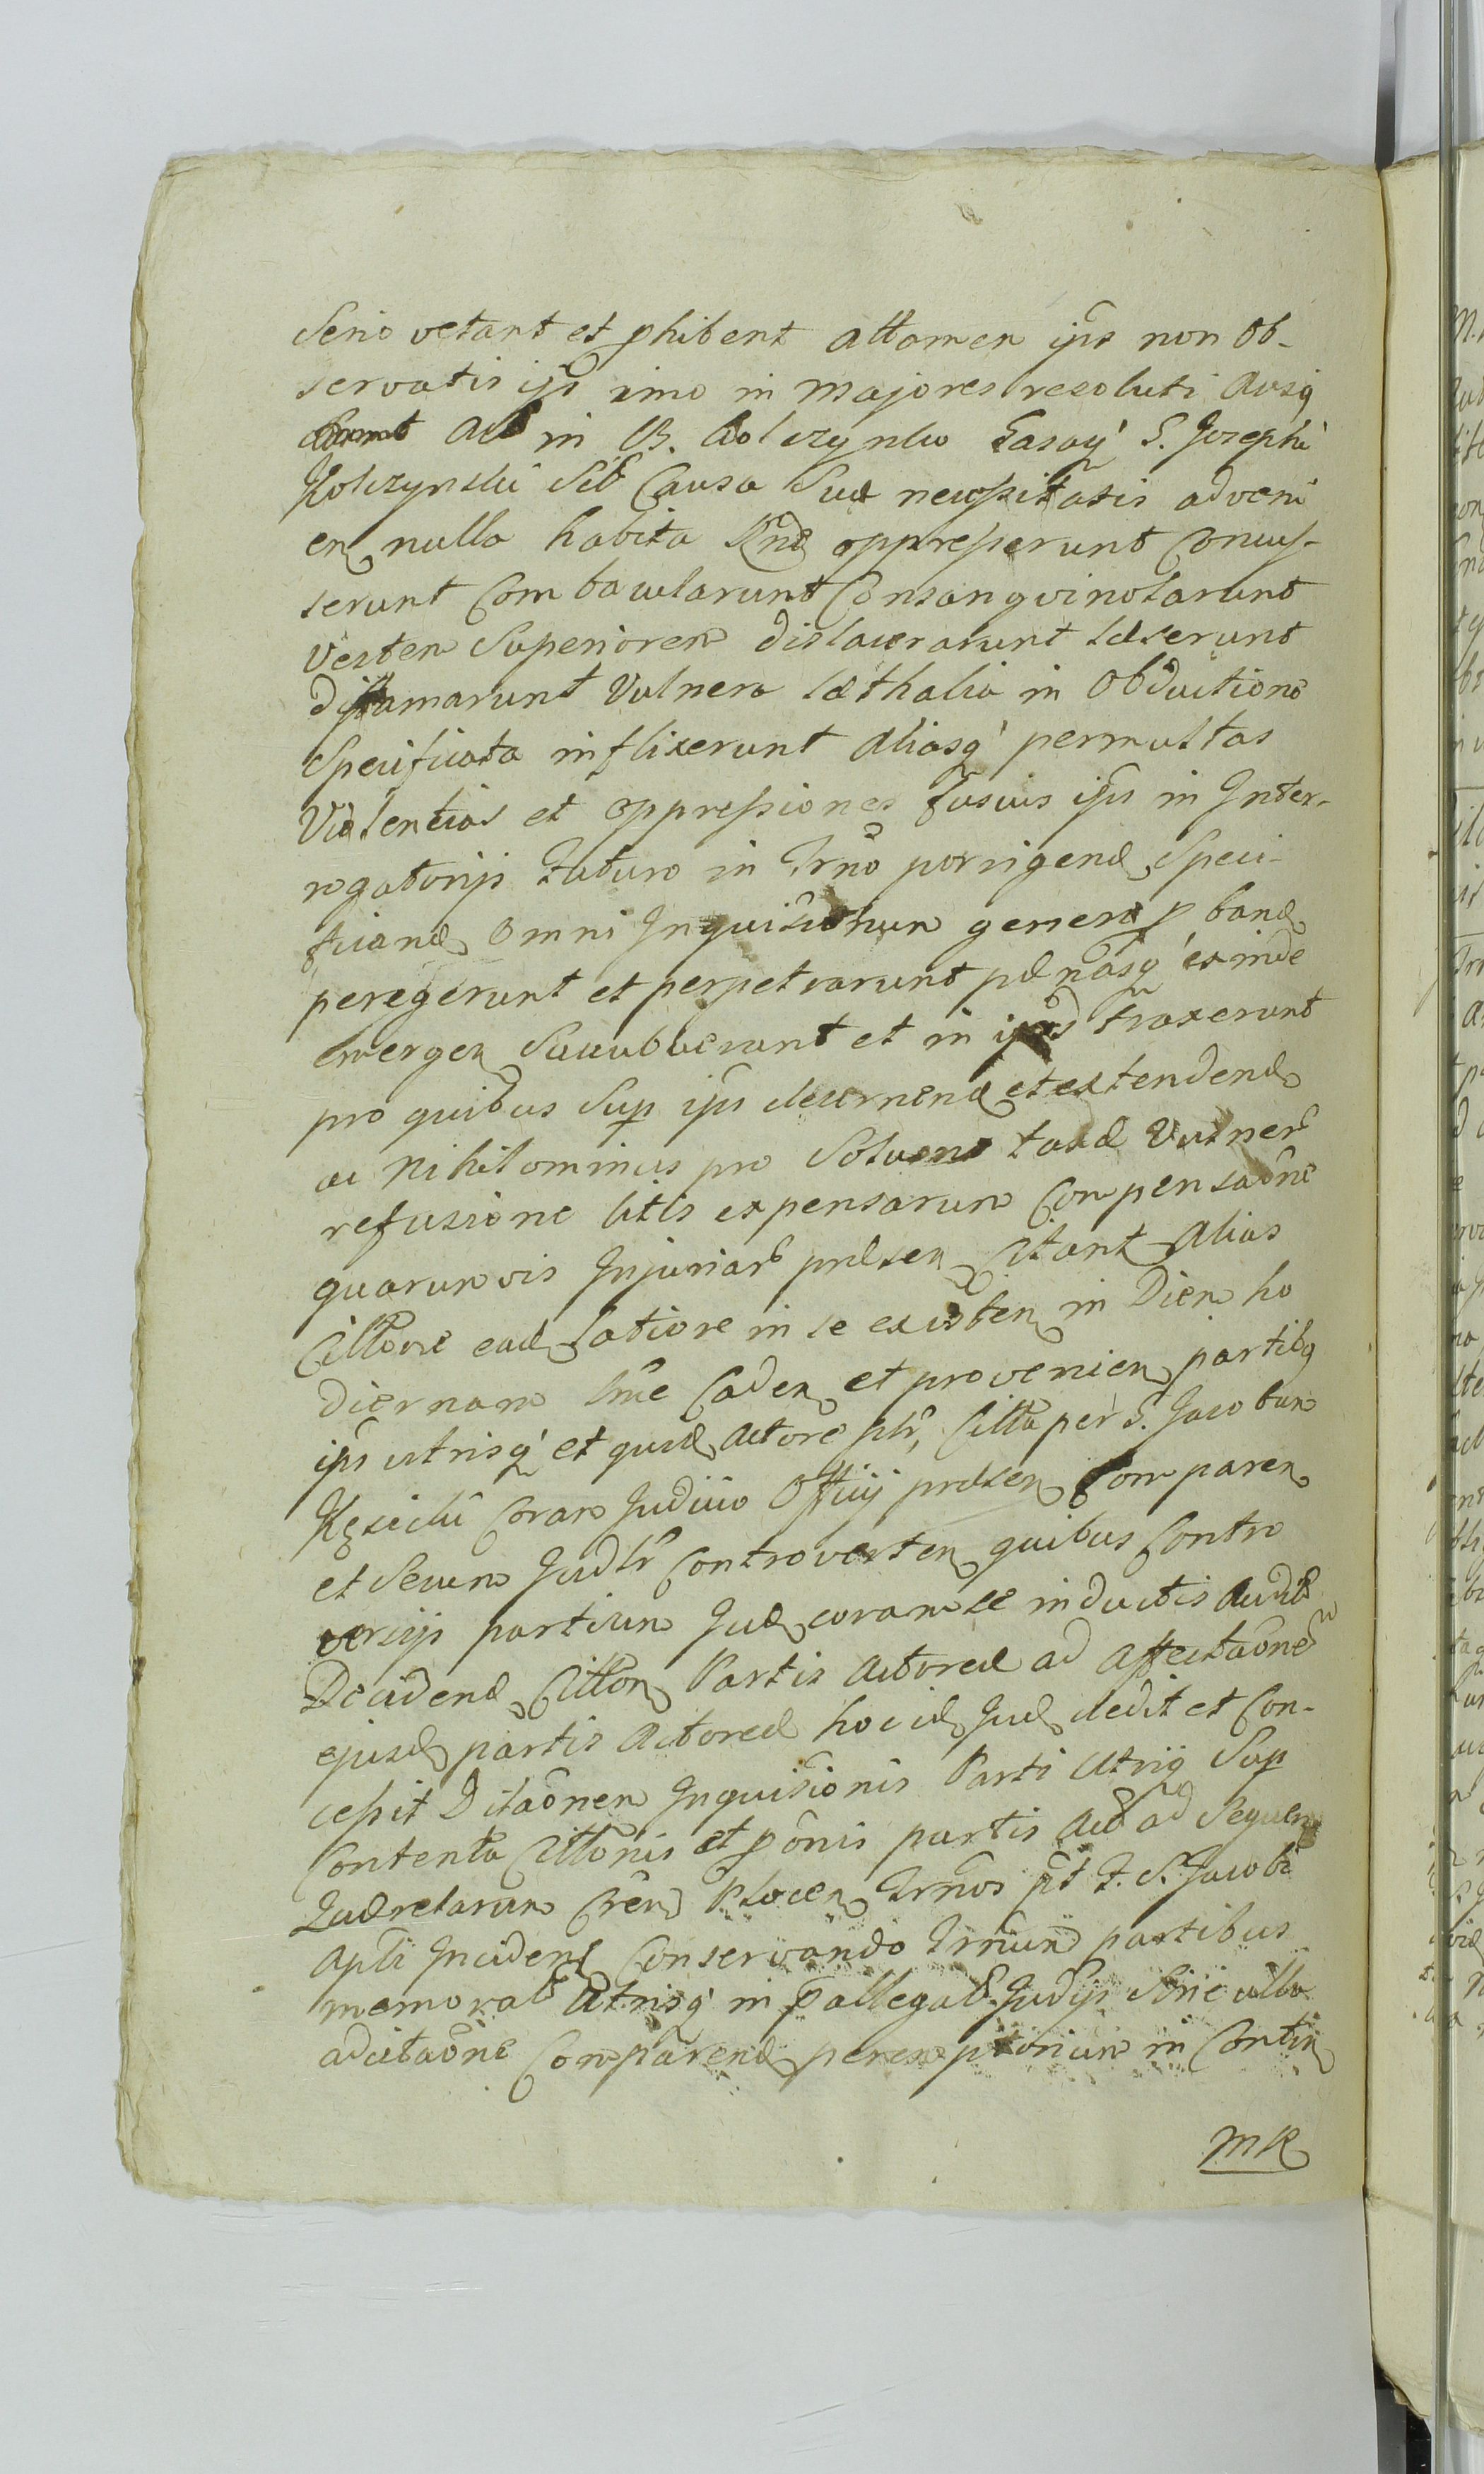 Serio vetant et phibent attamen ijs non Ob-
servatis ijs imo in majores resoluti Ausq
sunt Act in B. Kolczynko Łasoÿ S. Josephi
Kolczynski Scil Causa Suæ necessitatis adveni
en nulla habita oppresserunt Concus-
serunt Combacularunt Consangvinolarunt
Vestem Superiorem dislacerarunt læserunt
diffamarunt Vulnera læthalia in Obductione
Specificata inflixerunt Aliasq permultas
Violentias et oppressiones fusius ijs in Inter-
rogatorijs futuro in Trno porrigend Speci-
ficand Omni Inquisitionum genere pband
peregerunt et perpetrarunt pænasq exinde
emergen Succubuerunt et in traxerunt
pro quibus Sup ijs decernend et extendend
ac nihilominus pro Solvend taxæ Vulner
refusione litis expensarum Compensaone
quarumvis Injuriar præsen Citant Alias
Cittone ead latiore in se existen in Diem ho
diernam lme Caden et provenien partibq
ijs utrisq et quid Actore Cittta per S. Jacobum
Kęsicki Coram Judicio Officij præsen Comparen
et Secum Judlr Controverten quibus Contro
versijs partium Jud coram se inductis Audit
Decidend Citton Partis Actoreæ ad Affectaone
ejusd partis Actoreæ hoc id Jud dedit et Con-
cessit Dilaonem Inquisionis Parti Utriq Sup
Contenta Cittonis et ponis partis Act ad Sequen
Querelarum Cren Plocen Trnos pt F. S. Jacobi
Apli Inciden Conservando Trnum partibus
memorat Utrisq in Pallegat Judijs Sine ulla
adcitaone Comparend peremptorium in Contin
MK